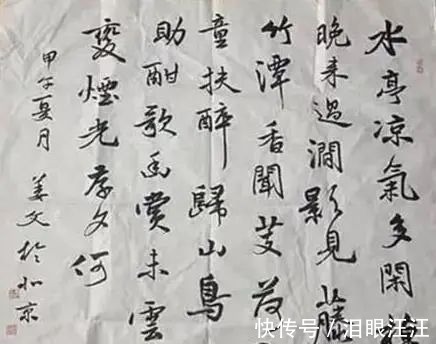 水亭凉氣多閑
晚来過澗影見藤
竹潭香聞芰
童扶醉歸山鳥
助酣歌幽賞未雲
變煙光奈夕何
甲午夏月 姜文於北京
快传号/泪眼汪汪